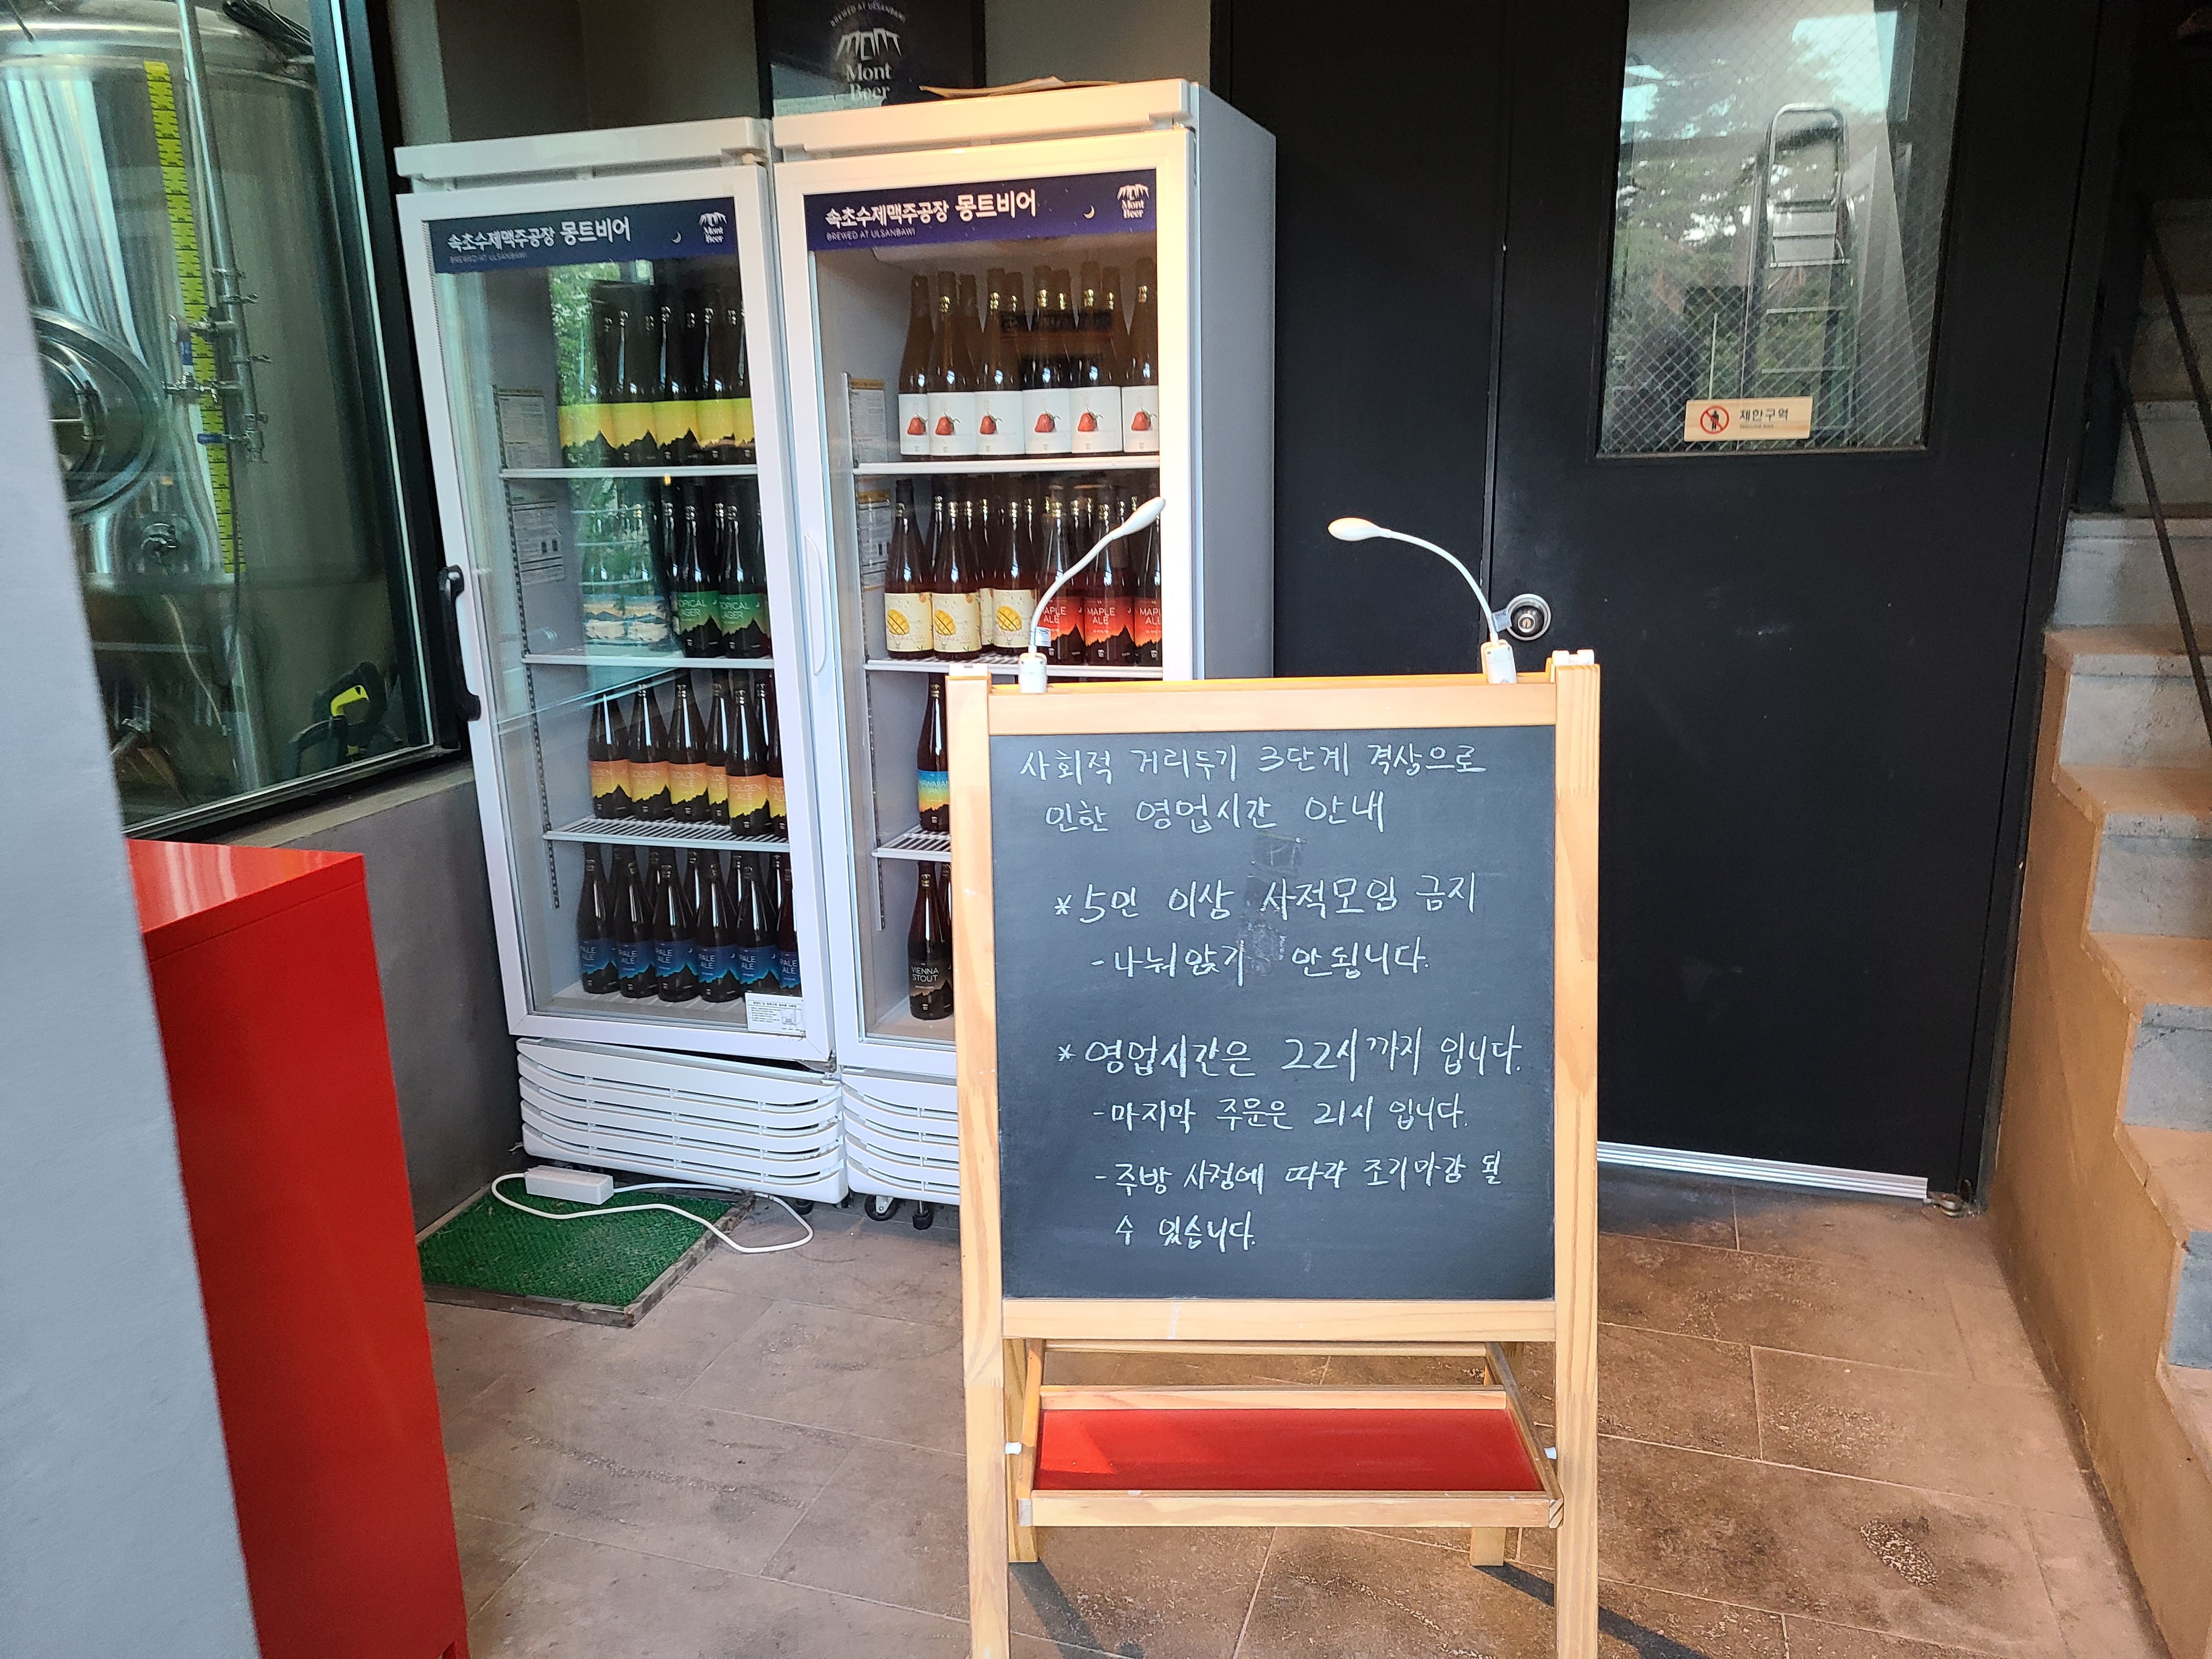 BREWED AT ULSANBAWI
Mont
Beer
속초수제맥주공장 몽트비어
BREWED AT ULSANBAWI
Mont
Beer
속초수제맥주공장 몽트비어
BREWED AT ULSANBAWI
Mont
Beer
제한구역
OPICAL
AGER
TOPICAL
LAGER
MAPLE
ALE
MAPLE
ALE
MAPLE
ALE
GOLDEN
ALE
GOLDEN
ALE
PALE
ALE
PALE
ALE
PALE
ALE
PALE
ALE
PALE
ALE
PALE
ALE
VIENNA
STOUT
사회적 거리두기 3단계 격상으로
인한 영업시간 안내
*5인 이상 사적모임 금지
-나눠앉기 안됩니다.
*영업시간은 22시까지 입니다.
-마지막 주문은 21시 입니다.
-주방 사정에 따라 조기마감 될
수 있습니다.